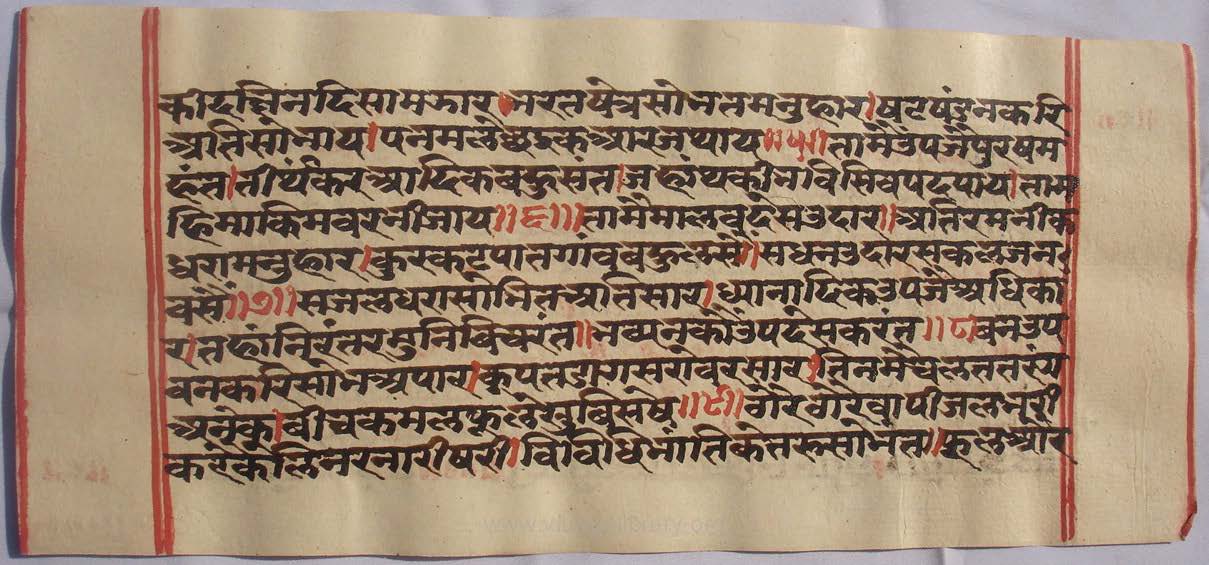 की दछिन दिसा मझार।भरत षेत्र सोभत मनुहार।षट षंडन करि
अति सोभाय।पन मलेछ इक आरज थाय॥५॥तामै उपजै पुरष म
हंत।तीर्थंकर आदिक बहु संत।जहां थकी भवि सिव पद पाय।ता म
हिमा किम वरनी जाय॥६॥तामै मालव देस उदार॥अति रमनीक
धरा मनुहार।कुरकट पात गांव बहु लसै॥सधन उदार सकल जन
वसै॥७॥सजल धरा सोभित अति सार।ध्यानादिके उपजै अधिका
र।तहां निरंतर मुनि विचरंत॥भव्यन को उपदेस करंत॥८॥वन उप
वन करि सोभ अपार।कूप तडाग सरोवर सार।तिनमे चलत तरंग
अनेक।बीच कमल फुले सु विसेष॥९॥ठोर ठोर वापी जल भरी
कर केलि नर नारी षरी।विविध भांति के तरु सोभंत॥फूल और